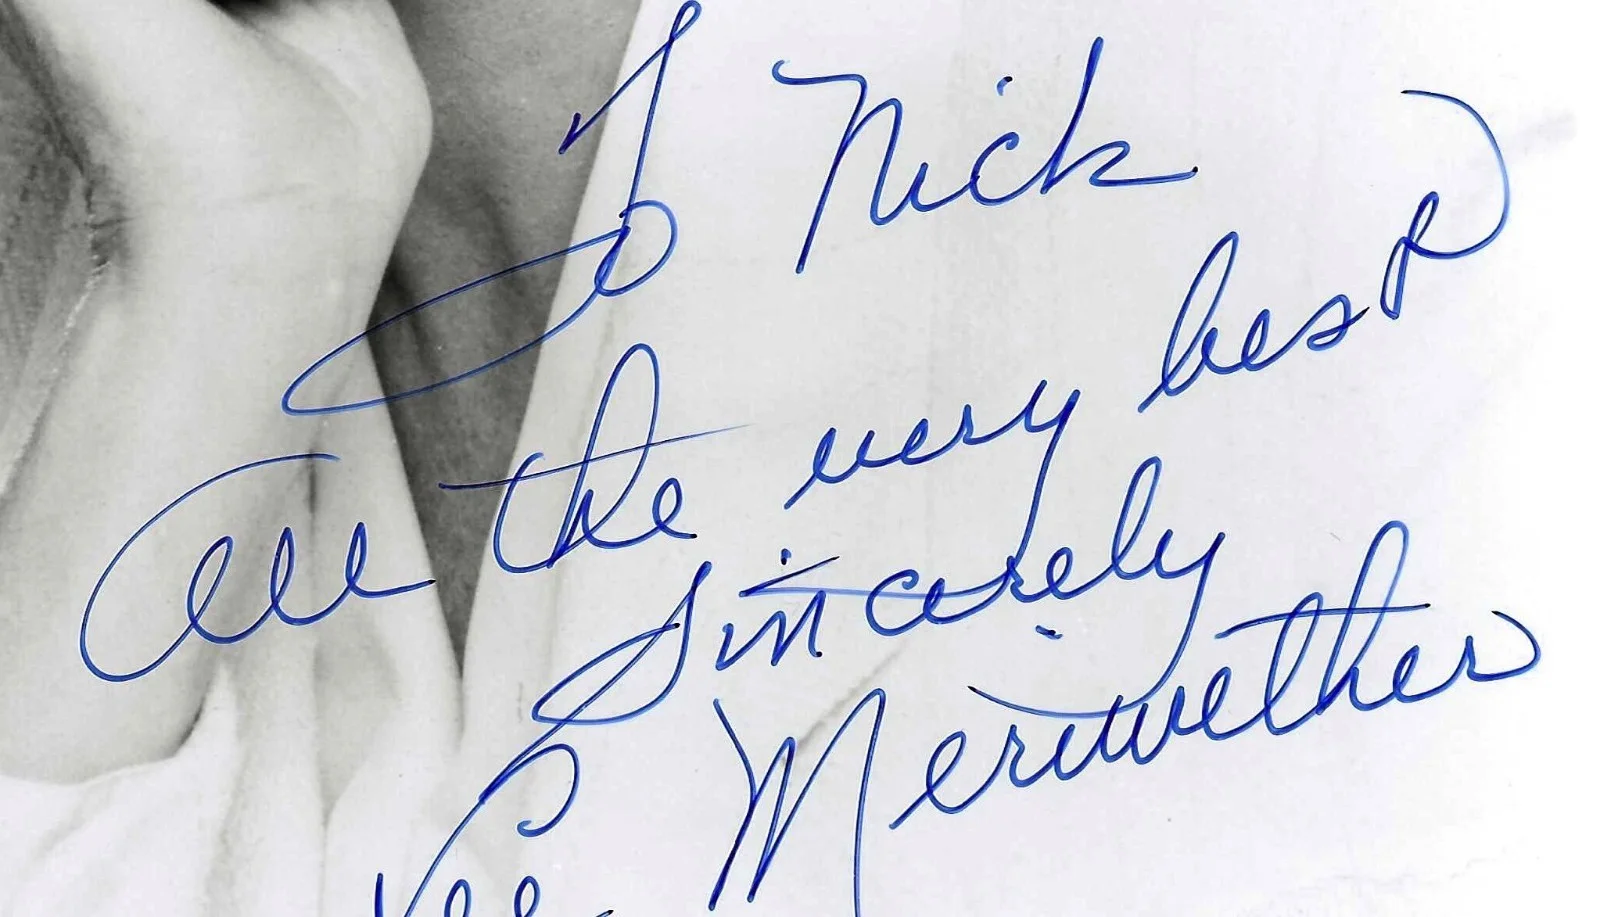 To Nick
All the very best
Sincerely
Lee Meriwether